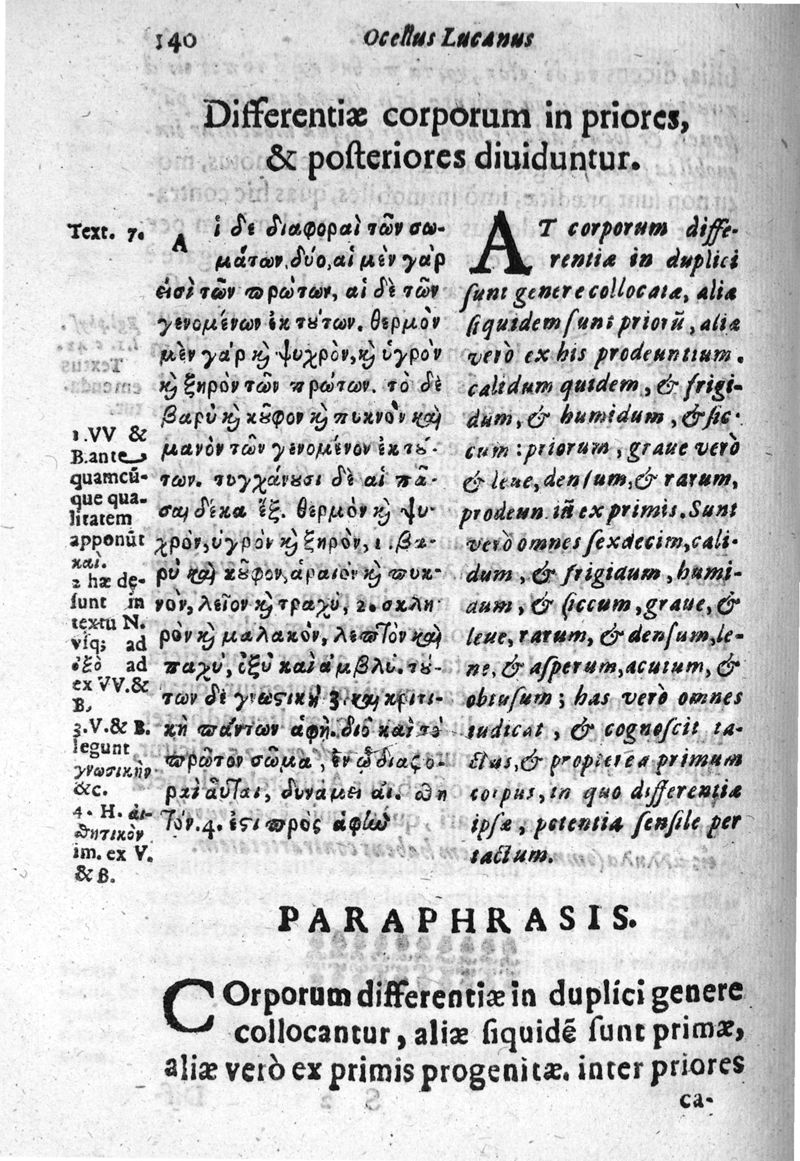 140
Ocellus Lucanus
Differentiæ corporum in priores,
& posteriores diuiduntur.
Text. 7.
Αἱ δὲ διαφοραὶ τῶν σω-
μάτων, δύο, αἱ μὲν γάρ
εἰσὶ τῶν πρώτων, αἱ δὲ τῶν
γενομένων ἐκ τούτων. θερμὸν
μὲν γάρ καὶ ψυχρὸν, καὶ ὑγρὸν
καὶ ξηρὸν τῶν πρώτων. τὸ δὲ
βαρὺ καὶ κοῦφον καὶ πυκνὸν καὶ
μανὸν τῶν γενομένον ἐκ τού-
των. τυγχάνουσι δὲ αἱ πᾶ-
σαι δέκα ἕξ. θερμὸν καὶ ψυ-
χρὸν, ὑγρὸν καὶ ξηρὸν, 1. βα-
ρὺ καὶ κοῦφον, ἀραιὸν καὶ πυκ-
νὸν, λεῖον καὶ τραχὺ, 2. σκλη-
ρὸν καὶ μαλακὸν, λεπτὸν καὶ
παχὺ, ὀξὺ καὶ ἀμβλὺ. τού-
των δὲ γνωστικὴ 3. καὶ κριτι-
κὴ πάντων ἁφὴ. διὸ καὶ τὸ
πρῶτον σῶμα, ἐν ᾧ διαφο-
ραὶ αὗται, δυνάμει αἰσθη
τὸν. 4. ἐστι πρὸς ἁφὴν
1. VV &
B. ante
quamcũ-
que qua-
litatem
apponũt
καὶ.
2 hæ de-
sunt in
textu N.
vsq; ad
ὀξὺ ad
ex VV. &
B.
3. V. & B.
legunt
γνωσικὴν
&c.
4. H. αἰ-
σθητικὸν
im. ex V.
& B.
AT corporum diffe-
rentiæ in duplici
sunt genere collocatæ, aliæ
siquidem sunt priorũ, aliæ
verò ex his prodeuntium.
calidum quidem, & frigi-
dum, & humidum, & sic-
cum: priorum, graue verò
& leue, densum, & rarum,
prodeunt in ex primis. Sunt
verò omnes sexdecim, cali-
dum, & frigidum, humi-
dum, & siccum, graue, &
leue, rarum, & densum, le-
ne, & asperum, acutum, &
obtusum; has verò omnes
iudicat, & cognoscit ta-
ctus, & propterea primum
corpus, in quo differentiæ
ipsæ, potentia sensile per
tactum.
PARAPHRASIS.
COrporum differentiæ in duplici genere
collocantur, aliæ siquidẽ sunt primæ,
aliæ verò ex primis progenitæ. inter priores
ca-